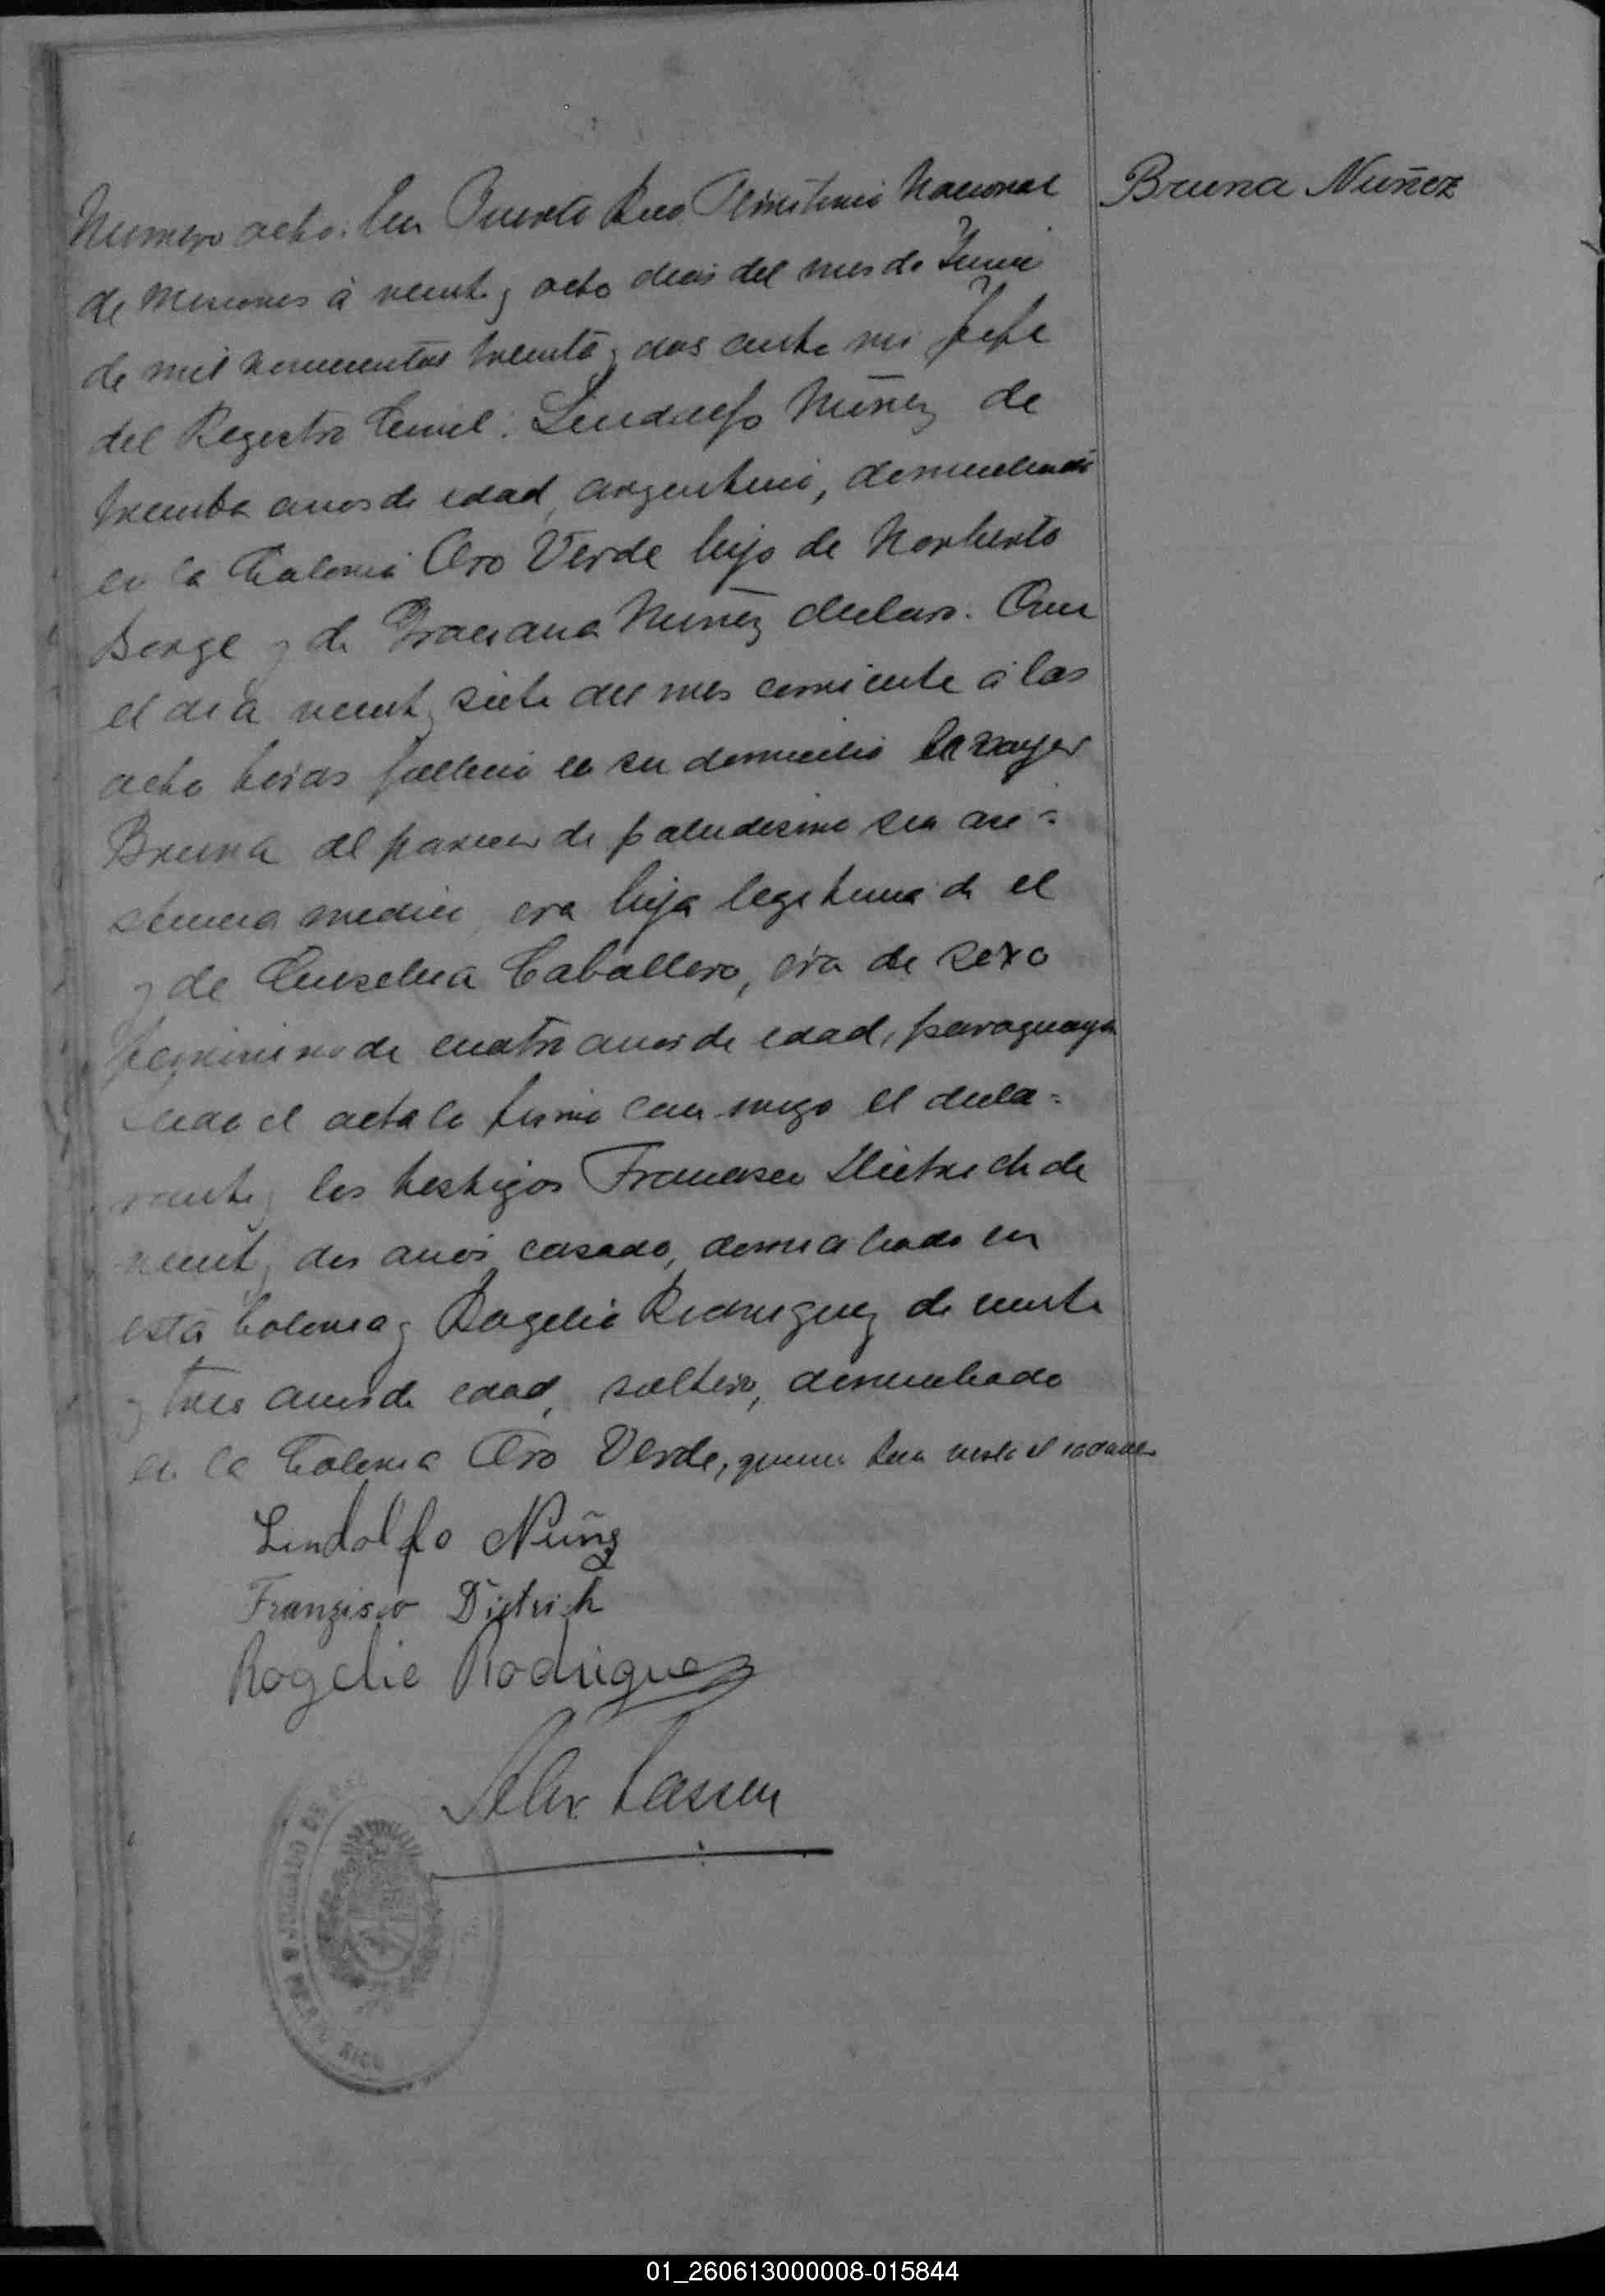 Bruna Nuñez
Numero ocho: En Puerto Rico Territorio Nacional
de Misiones á veinte y ocho dias del mes de Junio
de mil novecientos treinta y dos ante mi Jefe
del Registro Civil: Lindolfo Nuñez de
treinta años de edad, argentino, domiciliado
en la Colonia Oro Verde hijo de Norberto
Borge y de Graciana Nuñez declaro: Que
el dia veinte y siete del mes corriente á las
ocho horas fallecio en su domicilio la
Bruna al parecer de paludismo sin asi=
stencia medica, era hija legitima de el
y de Anselma Caballero, era de sexo
femenino de cuatro años de edad, paraguaya
Leida el acta la firmo con migo el decla=
rante y los testigos Francisco Dietrich de
veinte y dos años casado, domiciliado en
esta Colonia y Rogelio Rodriguez de veinte
y tres años de edad, soltero, domiciliado
en la Colonia Oro Verde, quienes han visto el cadaver
Lindolfo Nuñez
Franzisco Dietrich
Rogelio Rodriguez
JUZGADO DE PAZ
RICO
01_260613000008-015844